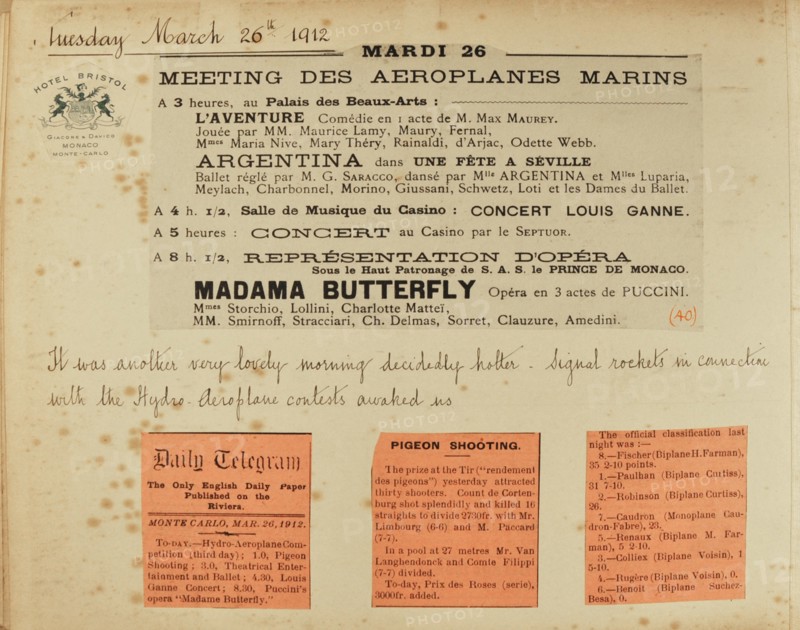 Tuesday March 26th 1912
MARDI 26
HOTEL BRISTOL
MONACO
MONTE-CARLO
MEETING DES AEROPLANES MARINS
A 3 heures, au Palais des Beaux-Arts :
L'AVENTURE Comédie en 1 acte de M. Max MAUREY.
Jouée par MM. Maurice Lamy, Maury, Fernal,
Mmes Maria Nive, Mary Théry, Rainaldi, d'Arjac, Odette Webb.
ARGENTINA dans UNE FÊTE A SÉVILLE
Ballet réglé par M. G. SARACCO, dansé par Mlle ARGENTINA et Mlles Luparia,
Meylach, Charbonnel, Morino, Giussani, Schwetz, Loti et les Dames du Ballet.
A 4 h. 1/2, Salle de Musique du Casino : CONCERT LOUIS GANNE.
A 5 heures : CONCERT au Casino par le SEPTUOR.
A 8 h. 1/2, REPRÉSENTATION D'OPÉRA
Sous le Haut Patronage de S. A. S. le PRINCE DE MONACO.
MADAMA BUTTERFLY Opéra en 3 actes de PUCCINI.
Mmes Storchio, Lollini, Charlotte Matteï,
MM. Smirnoff, Stracciari, Ch. Delmas, Sorret, Clauzure, Amedini.
(40)
It was another very lovely morning decidedly hotter - Signal rockets in connection
with the Hydro-Aeroplane contests awaked us
Daily Telegram
The Only English Daily Paper
Published on the
Riviera.
MONTE CARLO, MAR. 26, 1912.
TO-DAY.—Hydro-Aeroplane Com-
petition (third day) ; 1.0, Pigeon
Shooting ; 3.0, Theatrical Enter-
tainment and Ballet ; 4.30, Louis
Ganne Concert; 8.30, Puccini's
opera "Madame Butterfly."
PIGEON SHOOTING.
The prize at the Tir ("rendement
des pigeons") yesterday attracted
thirty shooters. Count de Corten-
burg shot splendidly and killed 16
straights to divide 2730fr. with Mr.
Limbourg (6-6) and M. Paccard
(7-7).
In a pool at 27 metres Mr. Van
Langhendonck and Comte Filippi
(7-7) divided.
To-day, Prix des Roses (serie),
3000fr. added.
The official classification last
night was :—
8.—Fischer (Biplane H. Farman),
35 2-10 points.
1.—Paulhan (Biplane Curtiss),
31 7-10.
2.—Robinson (Biplane Curtiss),
26.
7.—Caudron (Monoplane Cau-
dron-Fabre), 23.
5.—Renaux (Biplane M. Far-
man), 5 2-10.
3.—Colliex (Biplane Voisin), 1
5-10.
4.—Rugère (Biplane Voisin), 0.
6.—Benoit (Biplane Suchez-
Besa), 0.
PHOTO12